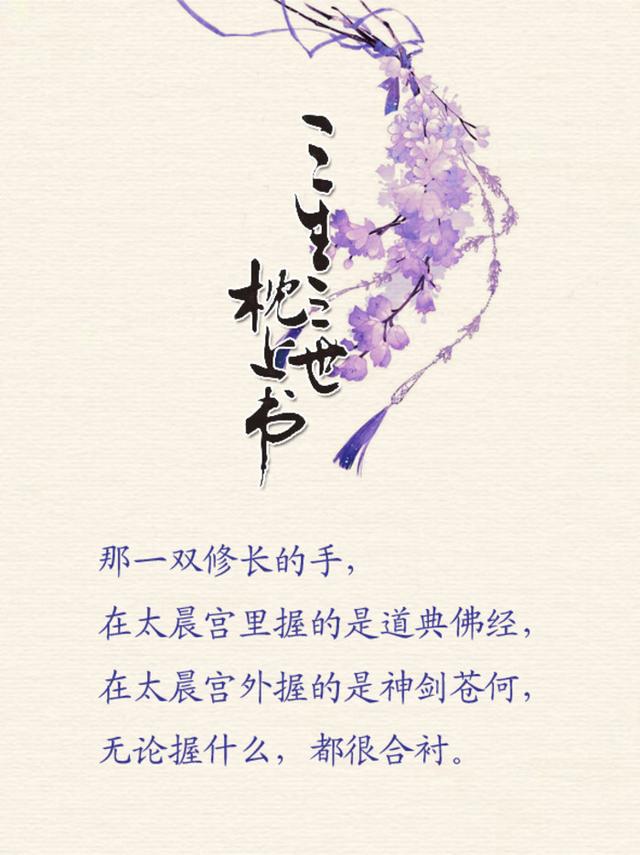 三生三世
枕上书
那一双修长的手，
在太晨宫里握的是道典佛经，
在太晨宫外握的是神剑苍何，
无论握什么，都很合衬。